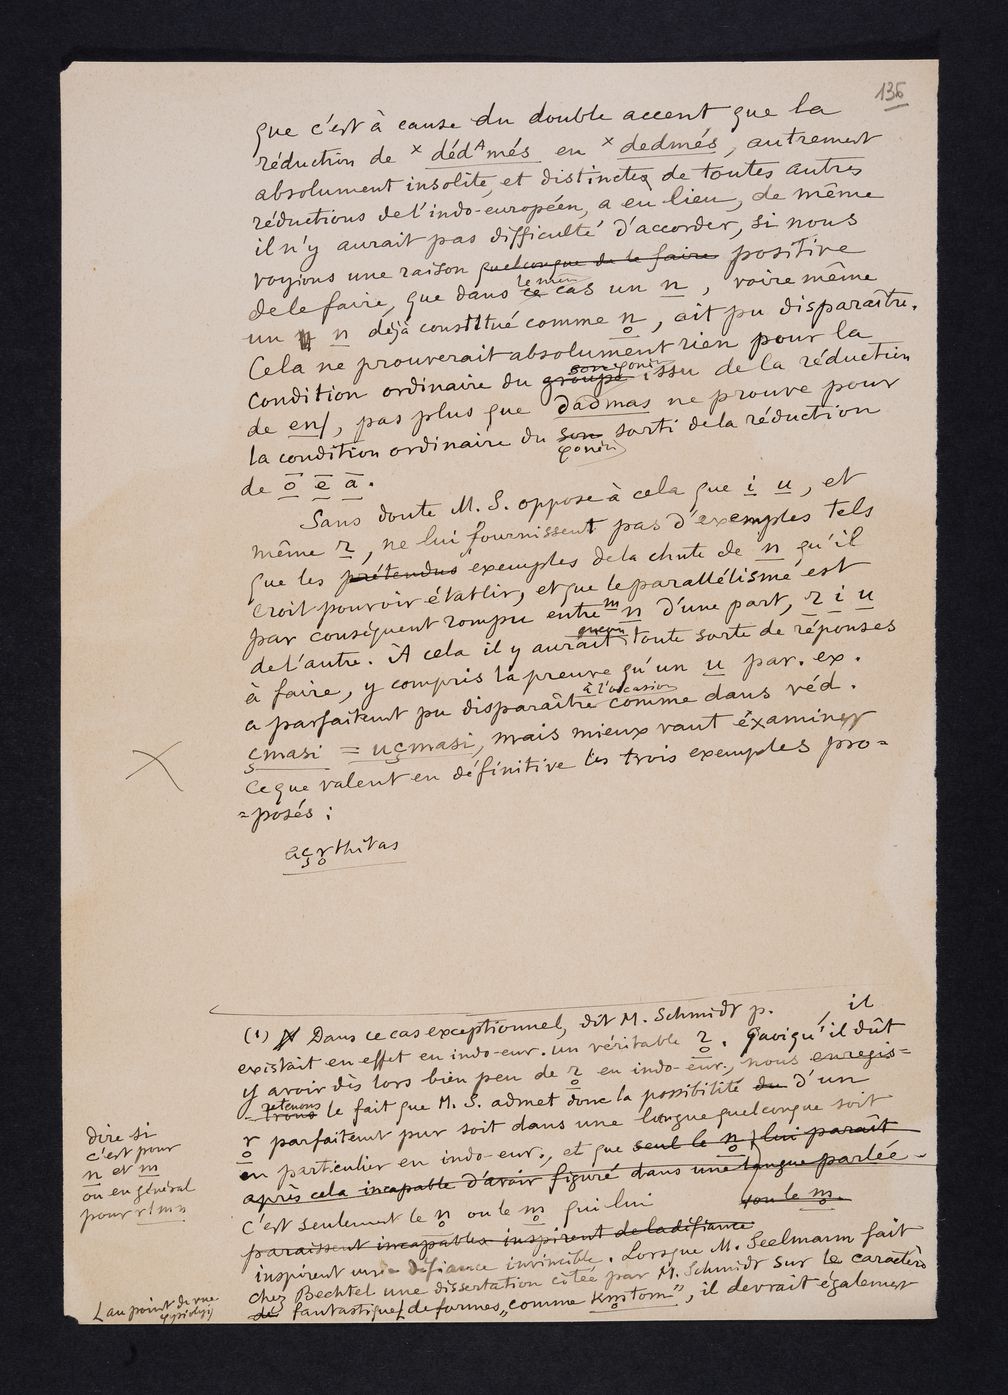 136
que c'est à cause du double accent que la
réduction de × dédᴬmés en × dedmés, autrement
absolument insolite, et distincte de toutes autres
réductions de l'indo-européen, a eu lieu, de même
il n'y aurait pas difficulté d'accorder, si nous
voyions une raison quelconque de le faire positive
de le faire, que dans ce cas un n, voire même
un n déjà constitué comme n̥, ait pu disparaître.
Cela ne prouverait absolument rien pour la
condition ordinaire du groupe issu de la réduction
de en, pas plus que dadmas ne prouve pour
la condition ordinaire du son sorti de la réduction
de ō ē ā.
Sans doute M. S. oppose à cela que i u, et
même r, ne lui fournissent pas d'exemples tels
que les prétendus exemples de la chute de n qu'il
croit pouvoir établir, et que le parallélisme est
par conséquent rompu entre m n d'une part, r i u
de l'autre. À cela il y aurait toute sorte de réponses
à faire, y compris la preuve qu'un u par. ex.
à l'occasion
a parfaitemt pu disparaître comme dans véd.
çmasi = uçmasi, mais mieux vaut examiner
ce que valent en définitive les trois exemples pro=
=posés :
açr̥thitas
(1) Dans ce cas exceptionnel, dit M. Schmidt p. , il
existait en effet en indo-eur. un véritable r̥. Quoiqu'il dût
y avoir dès lors bien peu de r̥ en indo-eur., nous enregis=
retenons
=trons le fait que M. S. admet donc la possibilité du d'un
r̥ parfaitemt pur soit dans une langue quelconque soit
en particulier en indo-eur., et que seul le n̥ lui paraît
après cela incapable d'avoir figuré dans une langue parlée.
ou le m̥.
c'est seulement le n̥ ou le m̥ qui lui
paraissent incapables inspirent de la défiance
inspirent une défiance invincible. Lorsque M. Seelmann fait
chez Bechtel une dissertation citée par M. Schmidt sur le caractère
de fantastique de formes „comme km̥tom", il devrait également
dire si
c'est pour
n et m
ou en général
pour r l m n
au point de vue